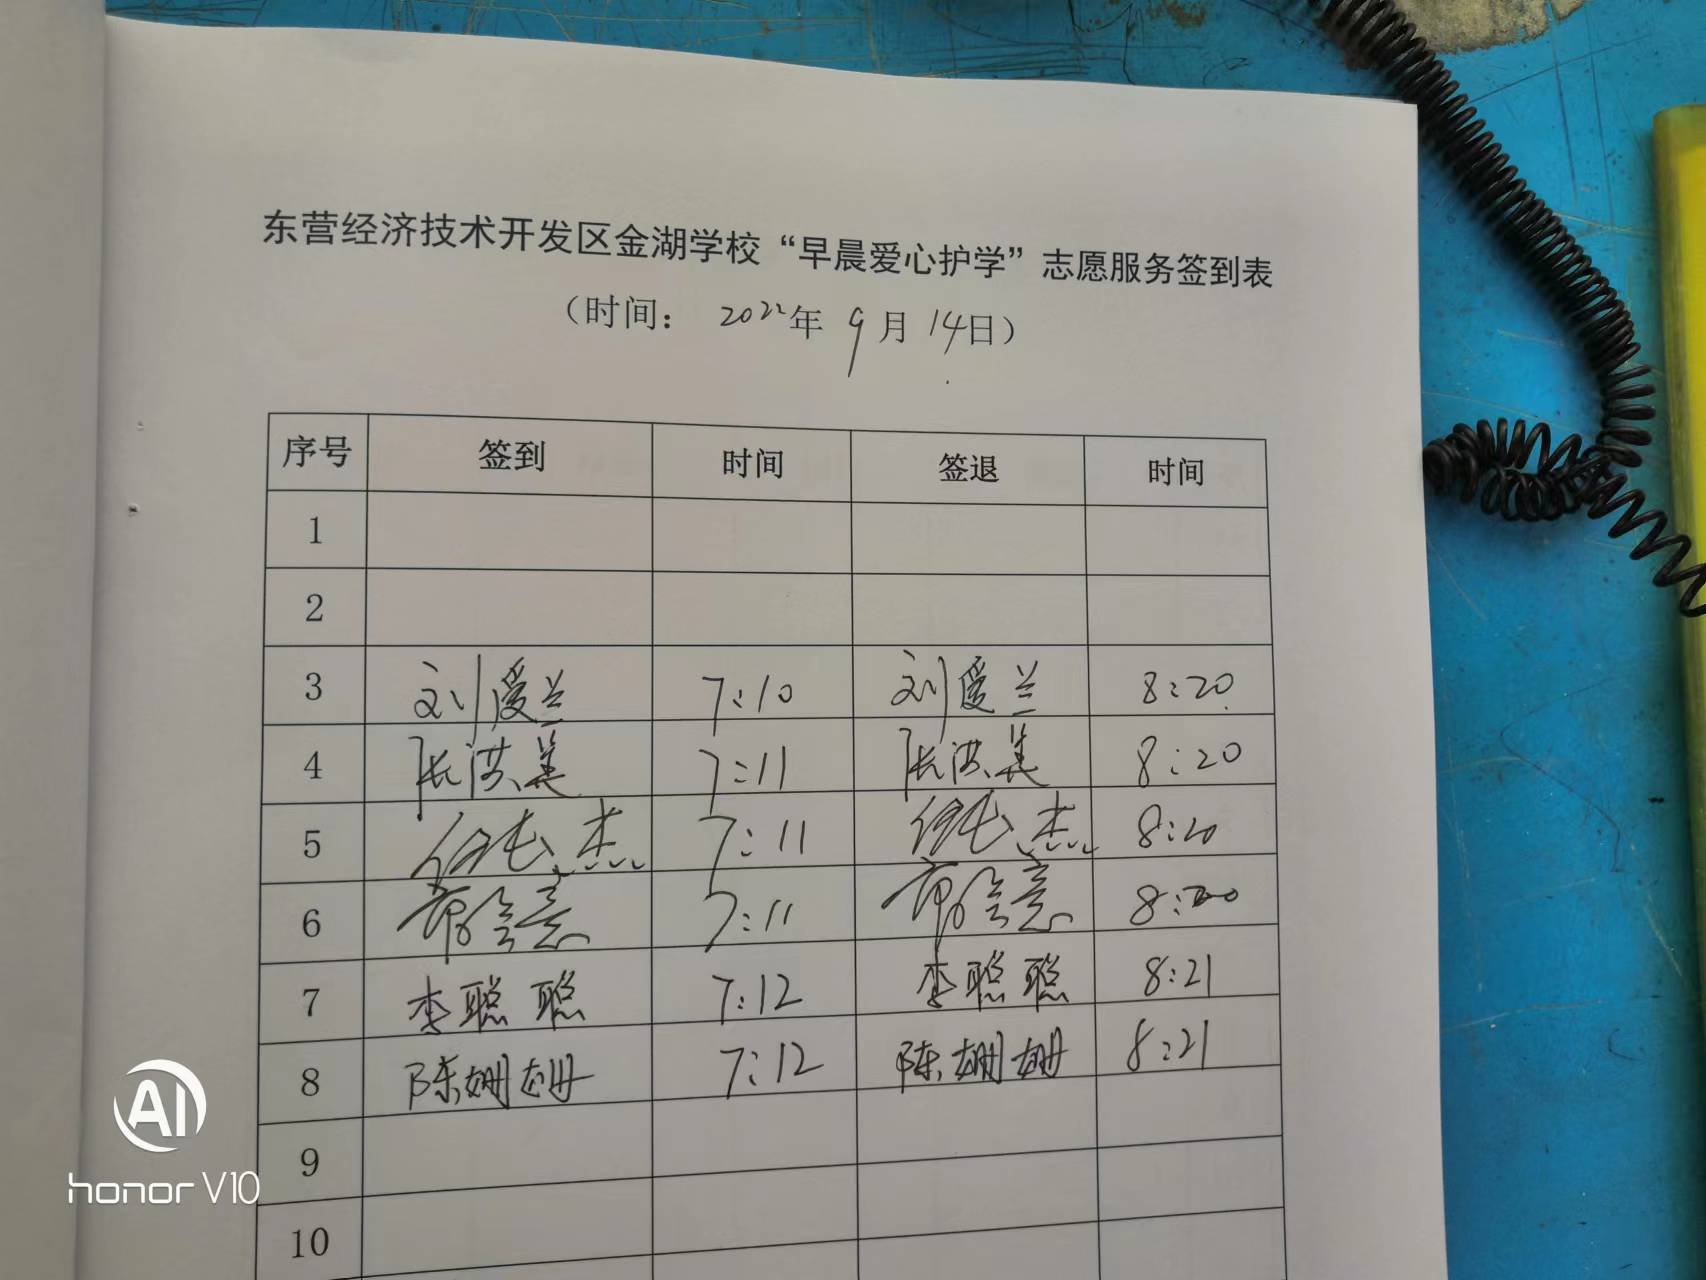 东营经济技术开发区金湖学校“早晨爱心护学”志愿服务签到表
（时间： 2022年 9月 14日）
序号 签到 时间 签退 时间
1
2
3 刘爱兰 7:10 刘爱兰 8:20
4 张洪美 7:11 张洪美 8:20
5 杰 7:11 杰 8:20
6 7:11 8:20
7 李聪聪 7:12 李聪聪 8:21
8 陈姗姗 7:12 陈姗姗 8:21
9
10
AI
honor V10